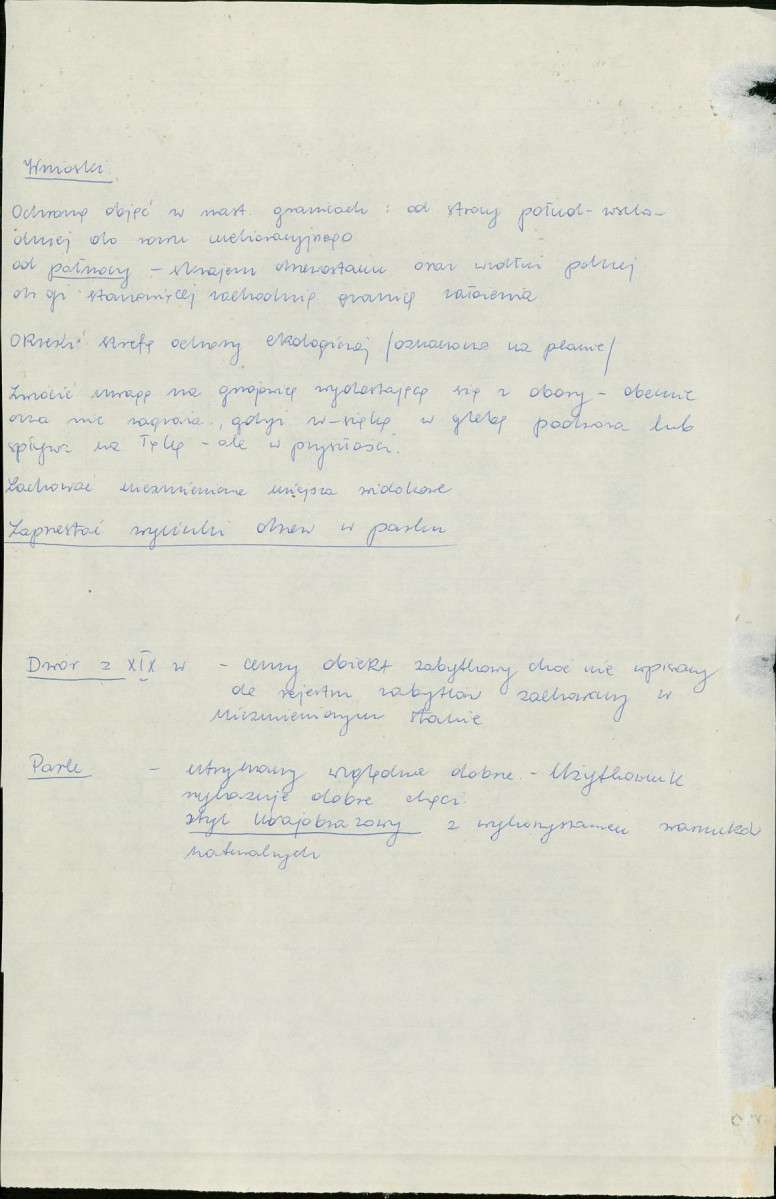 Wnioski
Ochronę objęć w nast. granicach : od strony połud-wscho-
dniej do rowu melioracyjnego
od północy – skrajem drzewostanu oraz wzdłuż polnej
drogi stanowiącej zachodnią granicę założenia
Określić strefę ochrony ekologicznej /oznaczona na planie/
Zwrócić uwagę na gnojowicę wydostającą się z obory – obecnie
ona nie zagraża, gdyż w-sięka w glebę podwórza lub
spływa na łąkę – ale w przyszłości.
Zachować niezmienione miejsca widokowe
Zaprzestać wycinki drzew w parku
Dwór z XIX w – cenny obiekt zabytkowy choć nie wpisany
do rejestru zabytków zachowany w
niezmienionym stanie
Park – utrzymany względnie dobrze. – Użytkownik
wykazuje dobre chęci.
styl krajobrazowy z wykorzystaniem warunków
naturalnych